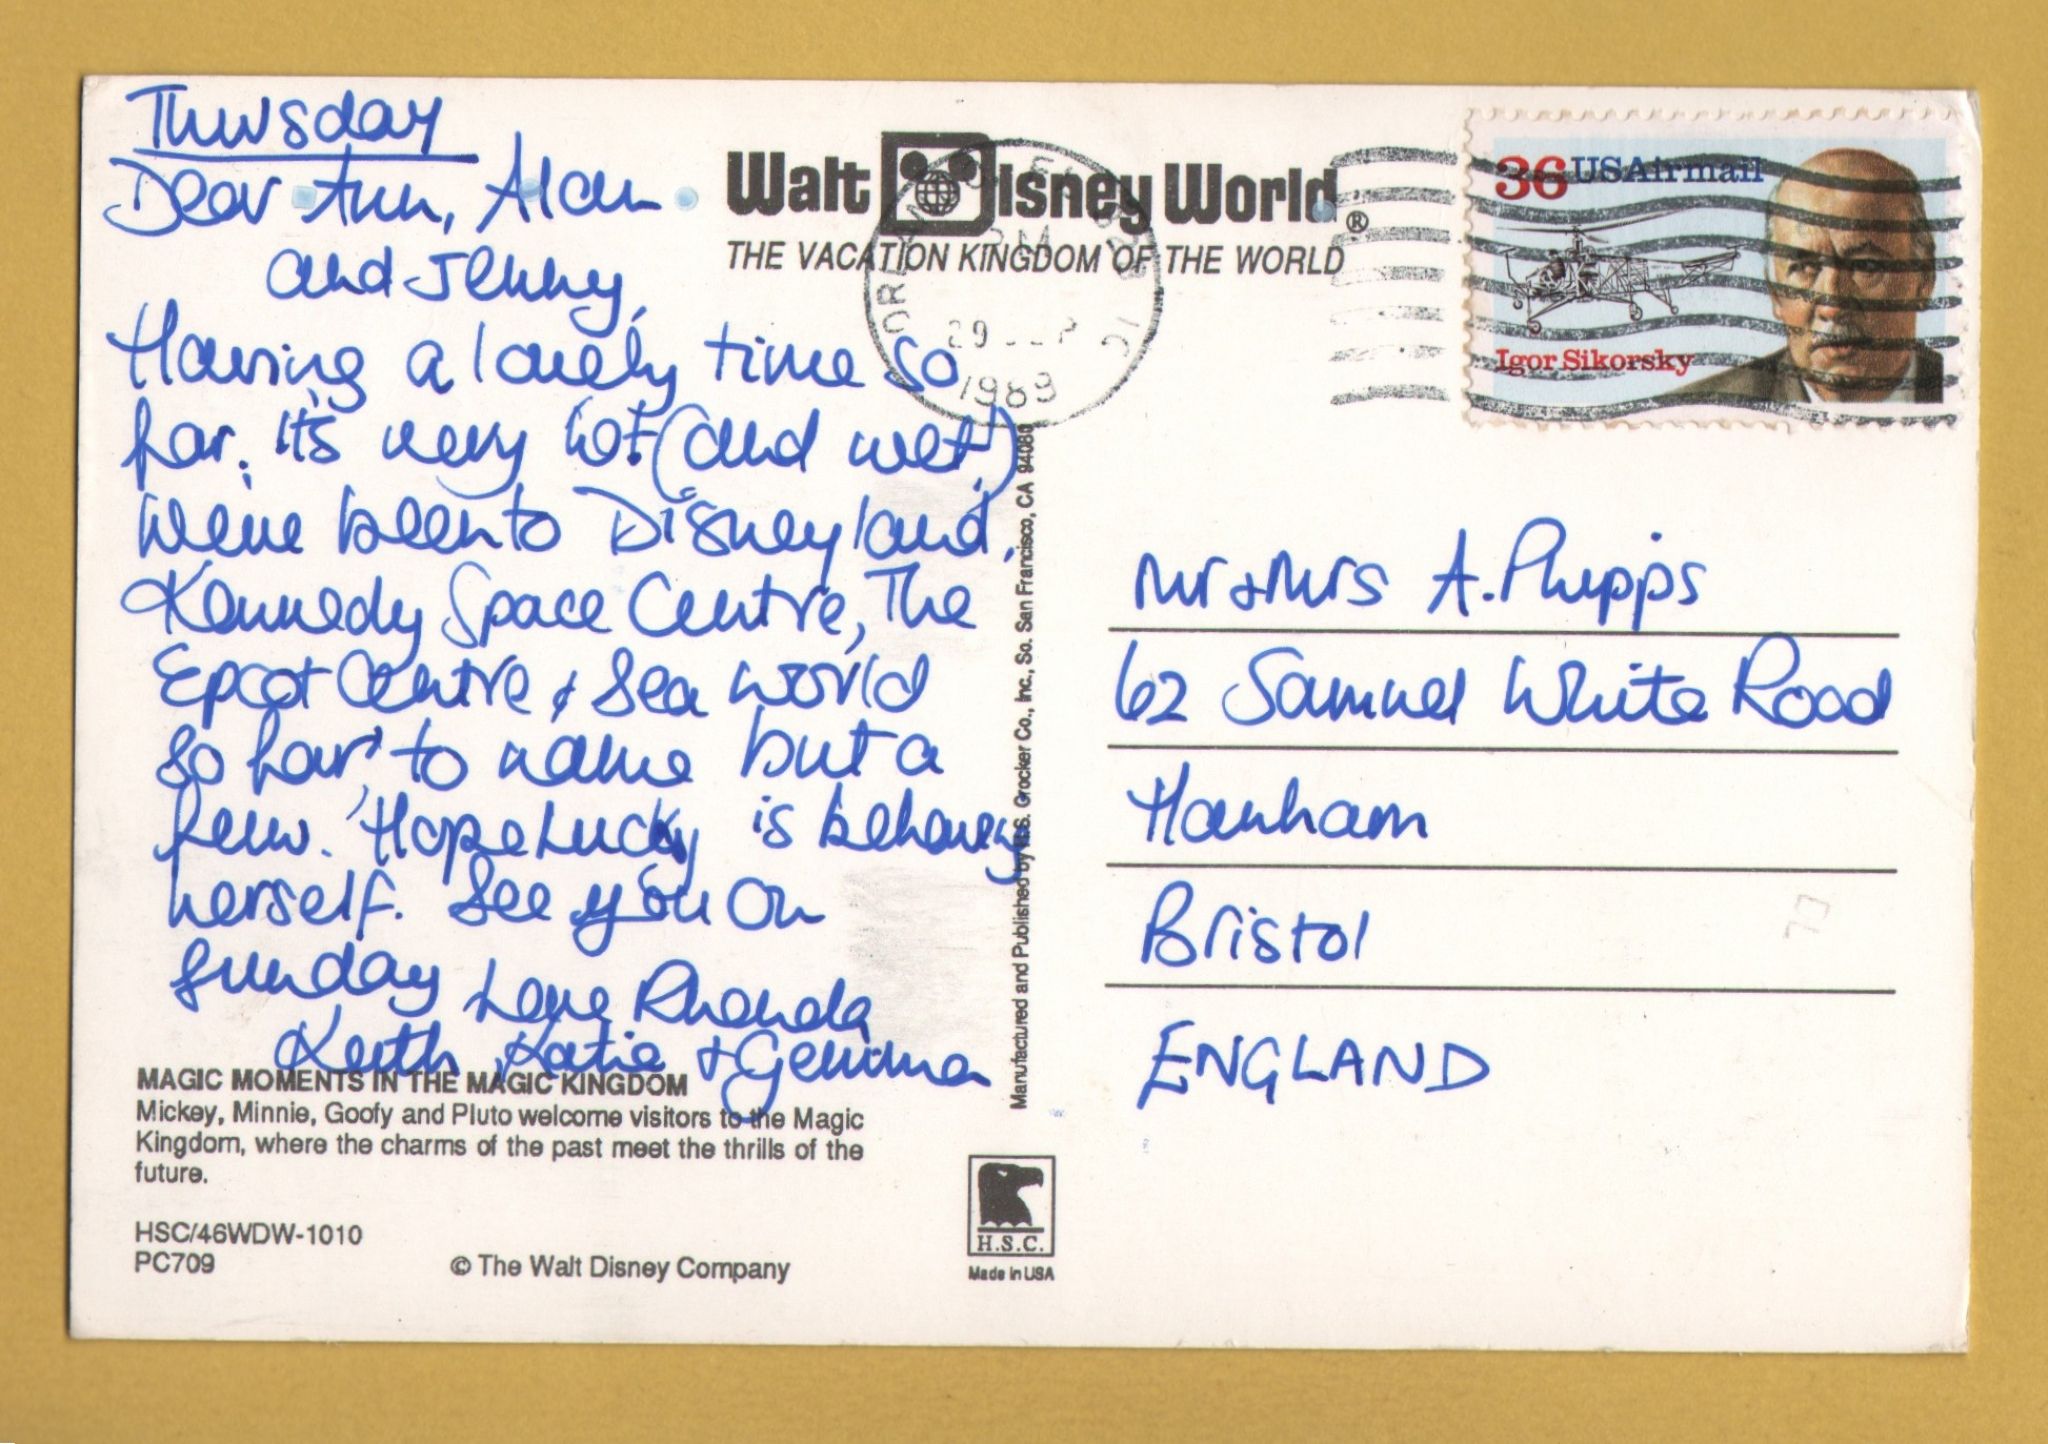 Thursday
Dear Ann, Alan
and Jenny,
Having a lovely time so
far. It's very hot (and wet)
We've been to Disneyland,
Kennedy Space Centre, The
Epcot Centre & Sea World
so far to name but a
few. Hope Lucky is behaving
herself. See you on
Sunday Love Rhonda
Keith, Katie & Gemma
MAGIC MOMENTS IN THE MAGIC KINGDOM
Mickey, Minnie, Goofy and Pluto welcome visitors to the Magic
Kingdom, where the charms of the past meet the thrills of the
future.
HSC/46WDW-1010
PC709
© The Walt Disney Company
Walt Disney World®
THE VACATION KINGDOM OF THE WORLD
PM
29
1989
Manufactured and Published by H.S. Crocker Co., Inc., So. San Francisco, CA 94080
H.S.C.
Made in USA
36 USAirmail
Igor Sikorsky
Mr & Mrs A. Phipps
62 Samuel White Road
Hanham
Bristol
ENGLAND